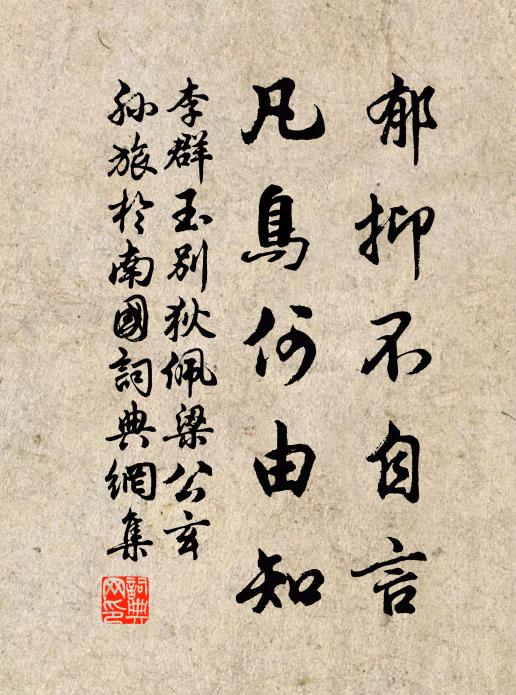 郁抑不自言
凡鳥何由知
李群玉別狄佩梁公玄
孫旅於南國詞典網集
詞典
网印